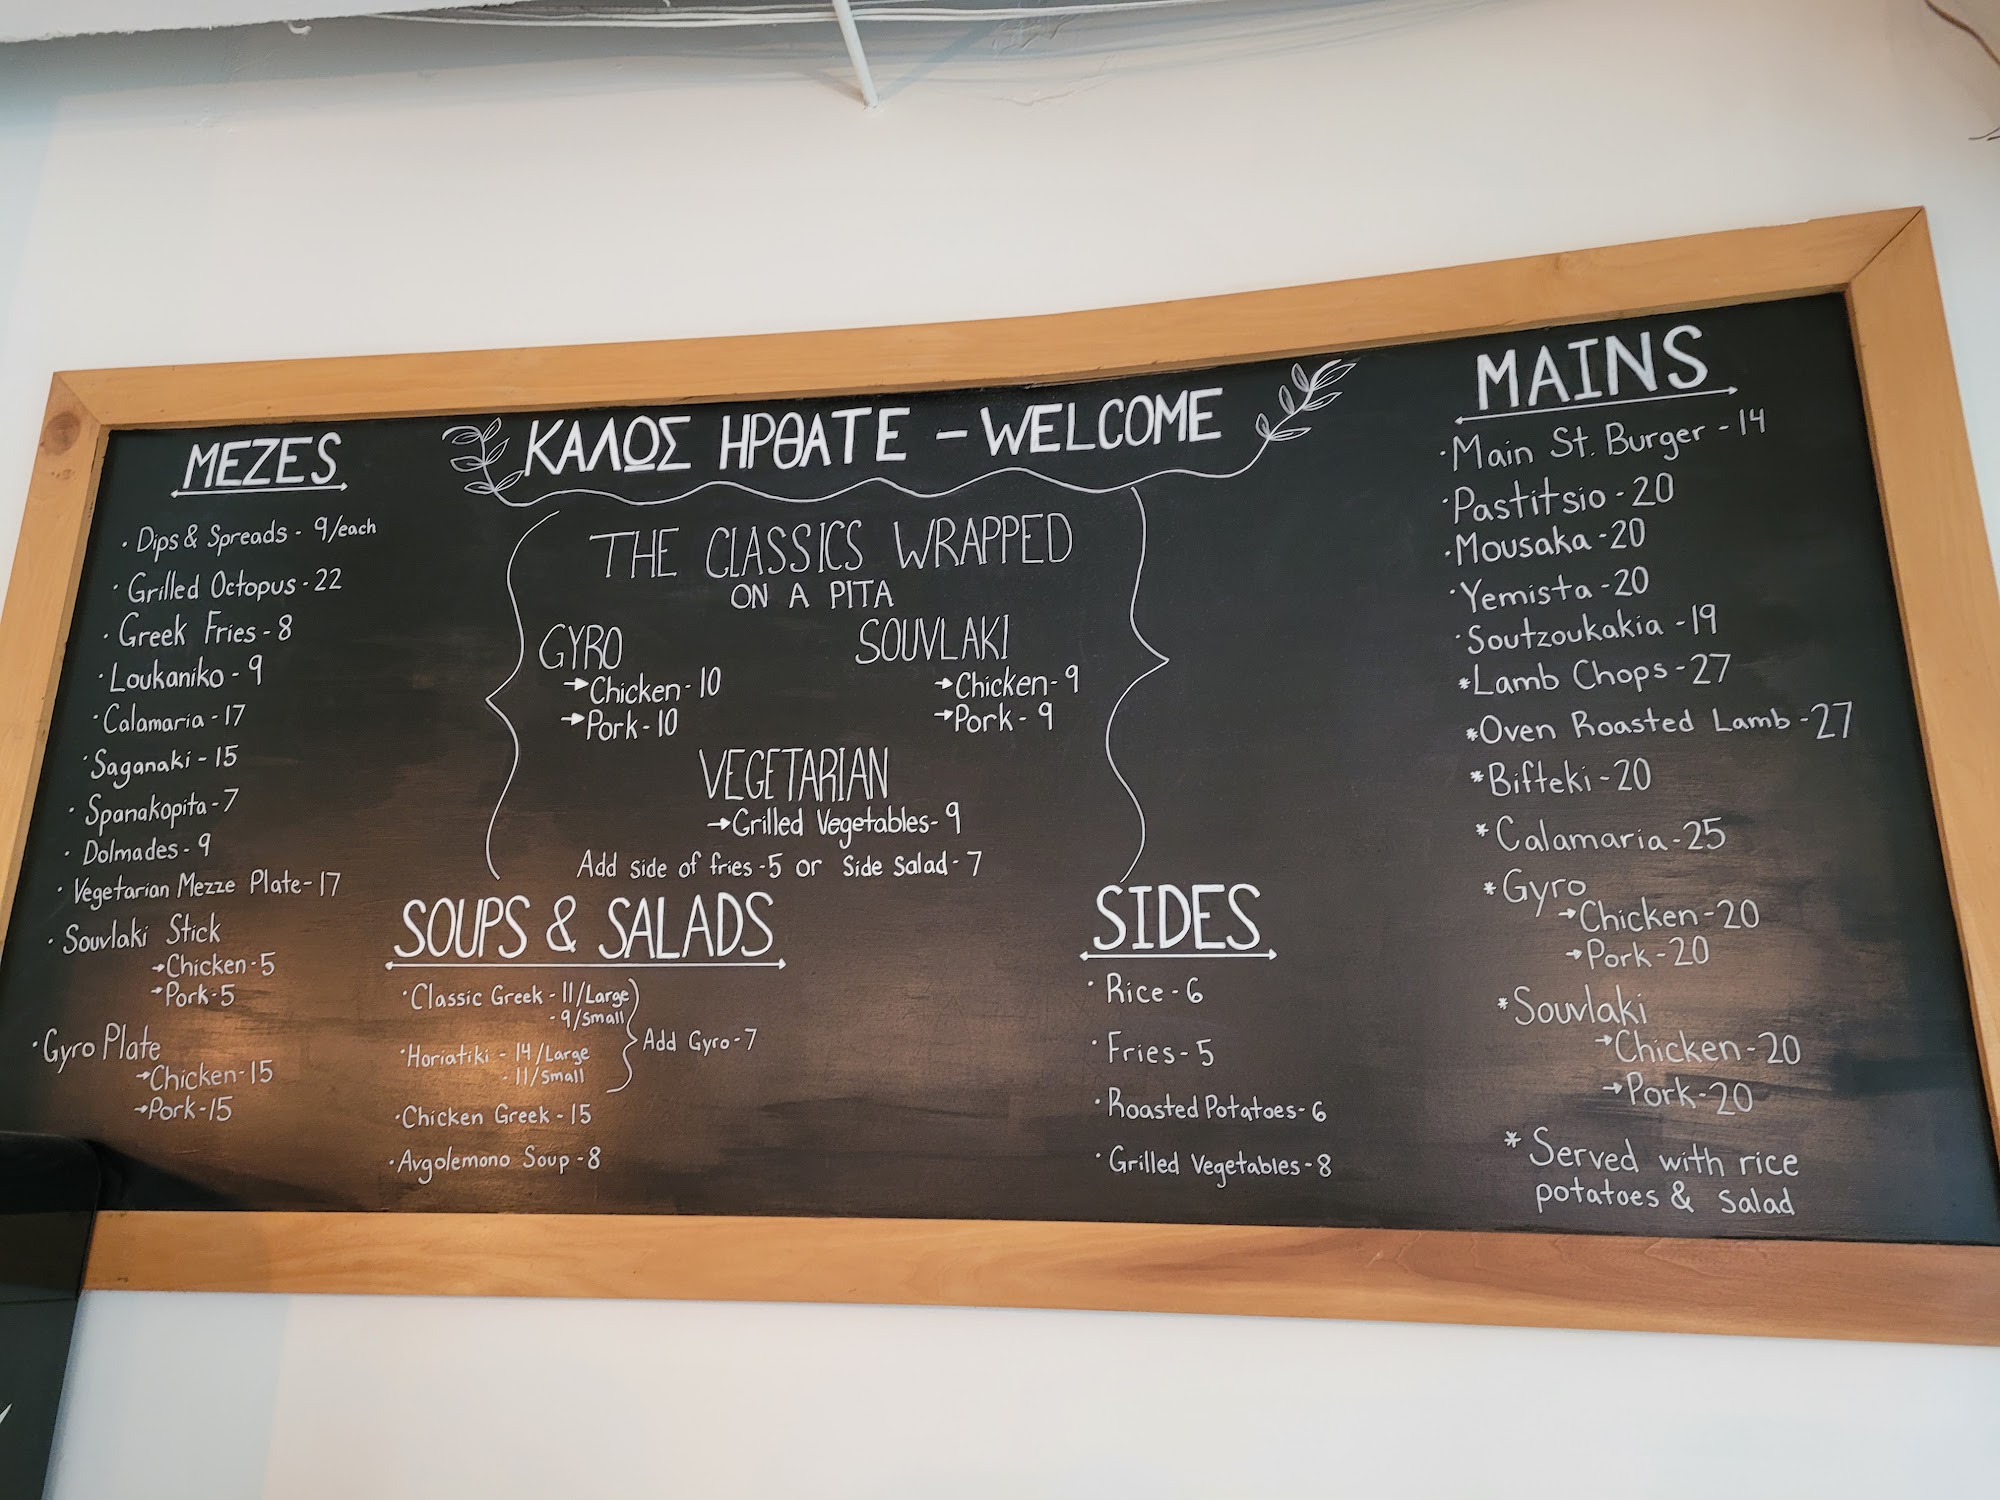 ΚΑΛΩΣ ΗΡΘΑΤΕ - WELCOME
MEZES
· Dips & Spreads - 9/each
· Grilled Octopus - 22
· Greek Fries - 8
· Loukaniko - 9
· Calamaria - 17
· Saganaki - 15
· Spanakopita - 7
· Dolmades - 9
· Vegetarian Mezze Plate - 17
· Souvlaki Stick
→ Chicken - 5
→ Pork - 5
· Gyro Plate
→ Chicken - 15
→ Pork - 15
THE CLASSICS WRAPPED
ON A PITA
GYRO
→ Chicken - 10
→ Pork - 10
SOUVLAKI
→ Chicken - 9
→ Pork - 9
VEGETARIAN
→ Grilled Vegetables - 9
Add side of fries - 5 or Side Salad - 7
SOUPS & SALADS
· Classic Greek - 11/Large
- 9/Small
· Horiatiki - 14/Large
- 11/Small
Add Gyro - 7
· Chicken Greek - 15
· Avgolemono Soup - 8
SIDES
· Rice - 6
· Fries - 5
· Roasted Potatoes - 6
· Grilled Vegetables - 8
MAINS
· Main St. Burger - 14
· Pastitsio - 20
· Mousaka - 20
· Yemista - 20
· Soutzoukakia - 19
* Lamb Chops - 27
* Oven Roasted Lamb - 27
* Bifteki - 20
* Calamaria - 25
* Gyro
→ Chicken - 20
→ Pork - 20
* Souvlaki
→ Chicken - 20
→ Pork - 20
* Served with rice
potatoes & Salad